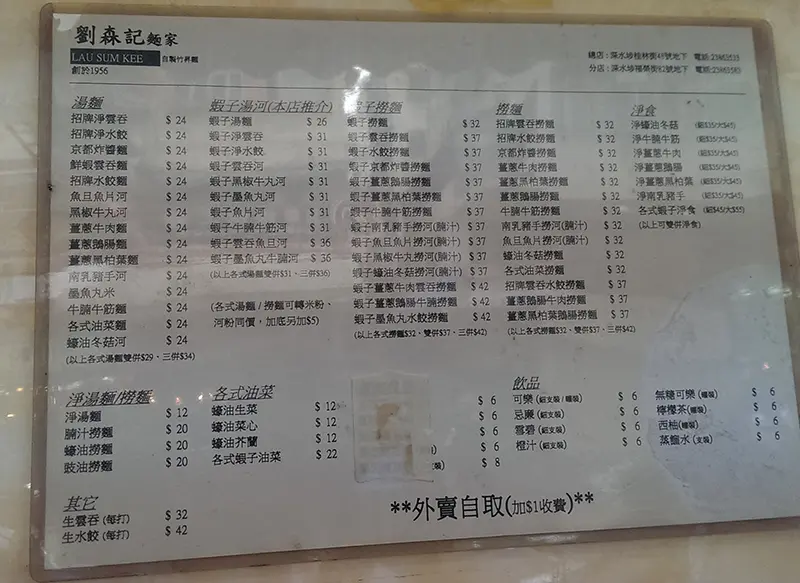 劉森記麵家
LAU SUM KEE 自製竹昇麵
創於1956
總店：深水埗桂林街48號地下 電話:23863533
分店：深水埗福榮街82號地下 電話:23863583
湯麵
招牌淨雲吞 $ 24
招牌淨水餃 $ 24
京都炸醬麵 $ 24
鮮蝦雲吞麵 $ 24
招牌水餃麵 $ 24
魚旦魚片河 $ 24
黑椒牛丸河 $ 24
薑蔥牛肉麵 $ 24
薑蔥鵝腸麵 $ 24
薑蔥黑柏葉麵 $ 24
南乳豬手河 $ 24
墨魚丸米 $ 24
牛腩牛筋麵 $ 24
各式油菜麵 $ 24
蠔油冬菇河 $ 24
(以上各式湯麵雙併$29、三併$34)
蝦子湯河(本店推介)
蝦子湯麵 $ 26
蝦子淨雲吞 $ 31
蝦子淨水餃 $ 31
蝦子雲吞河 $ 31
蝦子黑椒牛丸河 $ 31
蝦子墨魚丸河 $ 31
蝦子魚片河 $ 31
蝦子牛腩牛筋河 $ 31
蝦子雲吞魚旦河 $ 36
蝦子墨魚丸牛腩河 $ 36
(以上各式湯麵雙併$31、三併$36)
(各式湯麵 / 撈麵可轉米粉、
河粉同價，加底另加$5)
蝦子撈麵
蝦子撈麵 $ 32
蝦子雲吞撈麵 $ 37
蝦子水餃撈麵 $ 37
蝦子京都炸醬撈麵 $ 37
蝦子薑蔥鵝腸撈麵 $ 37
蝦子薑蔥黑柏葉撈麵 $ 37
蝦子牛腩牛筋撈麵 $ 37
蝦子南乳豬手撈河(腩汁) $ 37
蝦子魚旦魚片撈河(腩汁) $ 37
蝦子黑椒牛丸撈河(腩汁) $ 37
蝦子蠔油冬菇撈河(腩汁) $ 37
蝦子薑蔥牛肉雲吞撈麵 $ 42
蝦子薑蔥鵝腸牛腩撈麵 $ 42
蝦子墨魚丸水餃撈麵 $ 42
(以上各式撈麵$32、雙併$37、三併$42)
撈麵
招牌雲吞撈麵 $ 32
招牌水餃撈麵 $ 32
京都炸醬撈麵 $ 32
薑蔥牛肉撈麵 $ 32
薑蔥黑柏葉撈麵 $ 32
薑蔥鵝腸撈麵 $ 32
牛腩牛筋撈麵 $ 32
南乳豬手撈河(腩汁) $ 32
魚旦魚片撈河(腩汁) $ 32
蠔油冬菇撈麵 $ 32
各式油菜撈麵 $ 32
招牌雲吞水餃撈麵 $ 37
薑蔥鵝腸牛肉撈麵 $ 37
薑蔥黑柏葉鵝腸撈麵 $ 37
(以上各式撈麵$32、雙併$37、三併$42)
淨食
淨蠔油冬菇 (細$35/大$45)
淨牛腩牛筋 (細$35/大$45)
淨薑蔥牛肉 (細$35/大$45)
淨薑蔥鵝腸 (細$35/大$45)
淨薑蔥黑柏葉 (細$35/大$45)
淨南乳豬手 (細$35/大$45)
各式蝦子淨食 (細$45/大$55)
(以上可雙併淨食)
淨湯麵/撈麵
淨湯麵 $ 12
腩汁撈麵 $ 20
蠔油撈麵 $ 20
豉油撈麵 $ 20
各式油菜
蠔油生菜 $ 12
蠔油菜心 $ 12
蠔油芥蘭 $ 12
各式蝦子油菜 $ 22
$ 6
$ 6
$ 6
$ 6
$ 8
飲品
可樂 (鋁支裝 / 罐裝) $ 6
忌廉 (鋁支裝) $ 6
雪碧 (鋁支裝) $ 6
橙汁 (鋁支裝) $ 6
無糖可樂 (罐裝) $ 6
檸檬茶(罐裝) $ 6
西柚(罐裝) $ 6
蒸餾水 (支裝) $ 6
其它
生雲吞 (每打) $ 32
生水餃 (每打) $ 42
**外賣自取(加$1收費)**